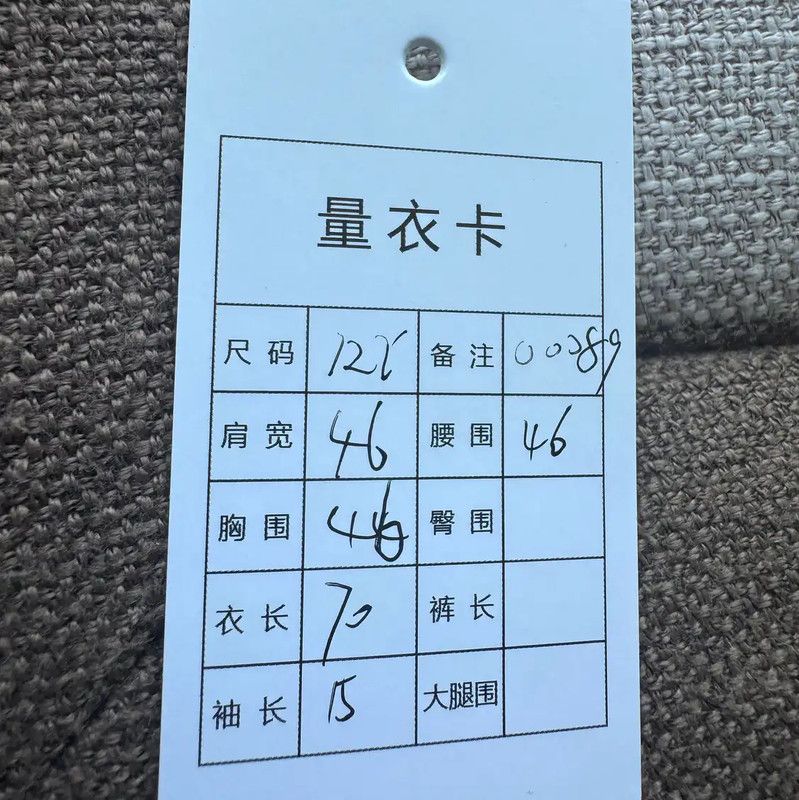 量衣卡
尺码 12X 备注 00289
肩宽 46 腰围 46
胸围 46 臀围
衣长 70 裤长
袖长 15 大腿围